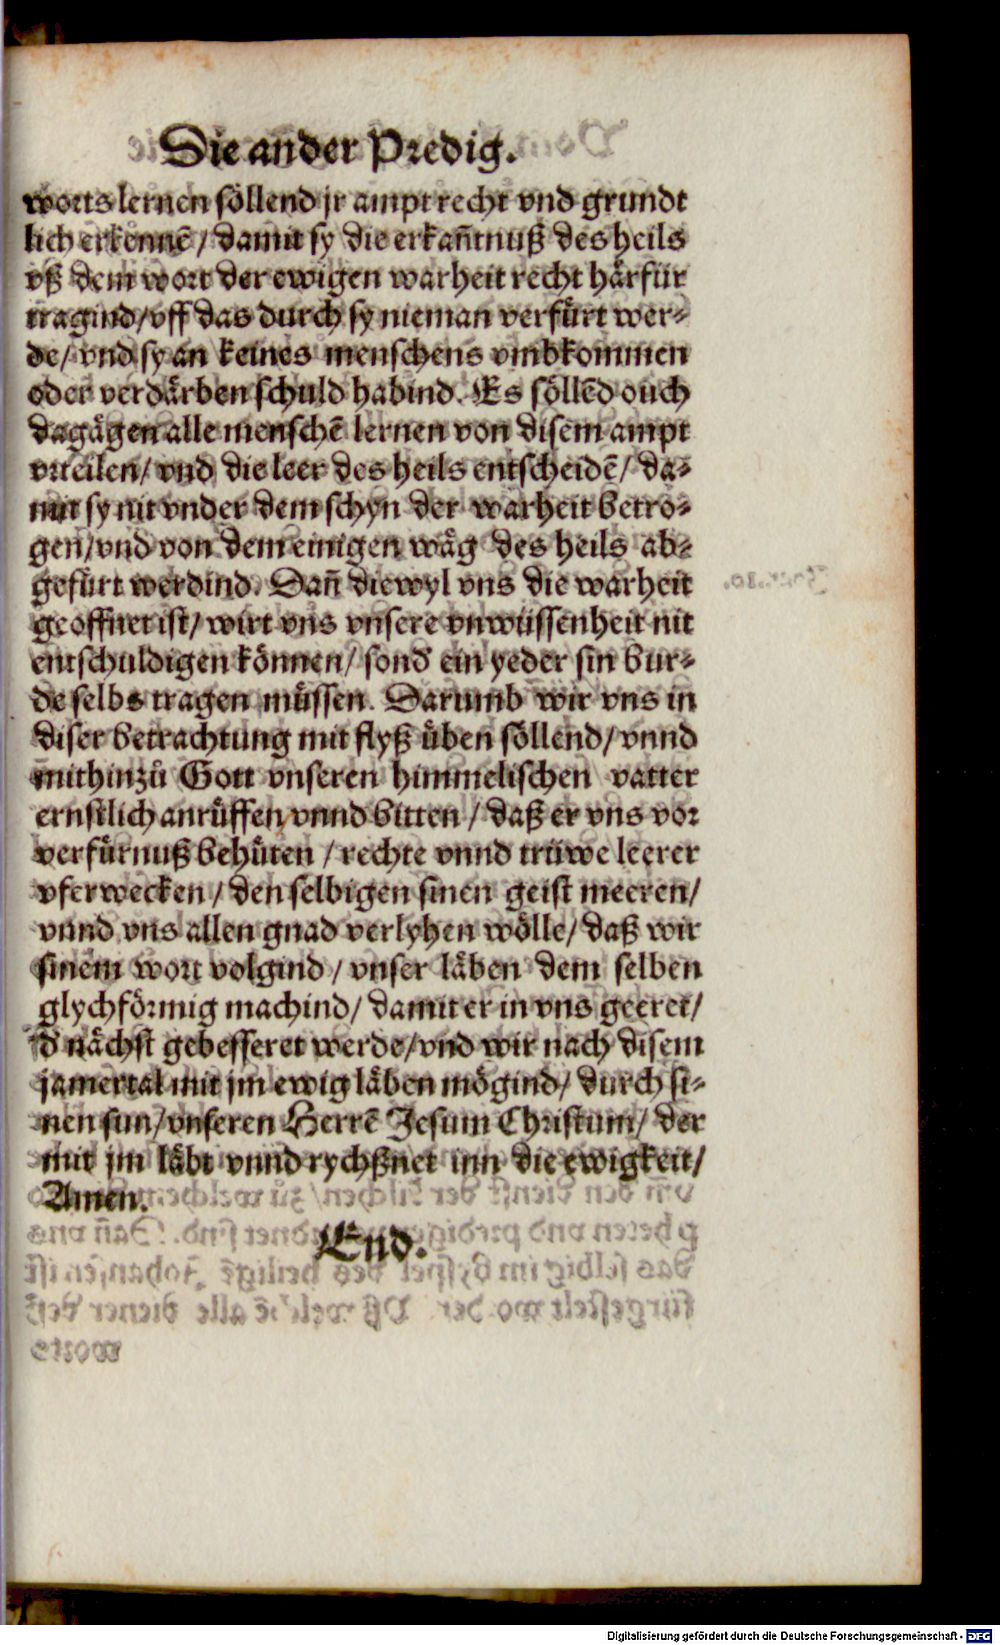 Die ander Predig.
worts lernen söllend jr ampt recht vnd grundt
lich erkennē / damit sy die erkañtnuß des heils
vß dem wort der ewigen warheit recht härfür
tragind / vff das durch sy nieman verfürt wer⸗
de / vnd sy an keines menschens vmbkommen
oder verdärben schuld habind. Es söllēd ouch
dagägen alle menschē lernen von disem ampt
vrteilen / vnd die leer des heils entscheidē / da⸗
mit sy nit vnder dem schyn der warheit betro⸗
gen / vnd von dem einigen wäg des heils ab⸗
gefürt werdind. Dañ diewyl vns die warheit
geoffnet ist / wirt vns vnsere vnwüssenheit nit
entschuldigen können / sond̕ ein yeder sin bur⸗
de selbs tragen müssen. Darumb wir vns in
diser betrachtung mit flyß üben söllend / vnnd
mithinzů Gott vnseren himmelischen vatter
ernstlich anrüffen vnnd bitten / daß er vns vor
verfürnuß behüten / rechte vnnd trüwe leerer
vferwecken / den selbigen sinen geist meeren /
vnnd vns allen gnad verlyhen wölle / daß wir
sinem wort volgind / vnser läben dem selben
glychförmig machind / damit er in vns geeret /
d̕ nächst gebesseret werde / vnd wir nach disem
jamertal mit jm ewig läben mögind / durch si⸗
nen sun / vnseren Herrē Jesum Christum / der
mit jm läbt vnnd rychßnet inn die ewigkeit /
Amen.
End.
Digitalisierung gefördert durch die Deutsche Forschungsgemeinschaft - DFG